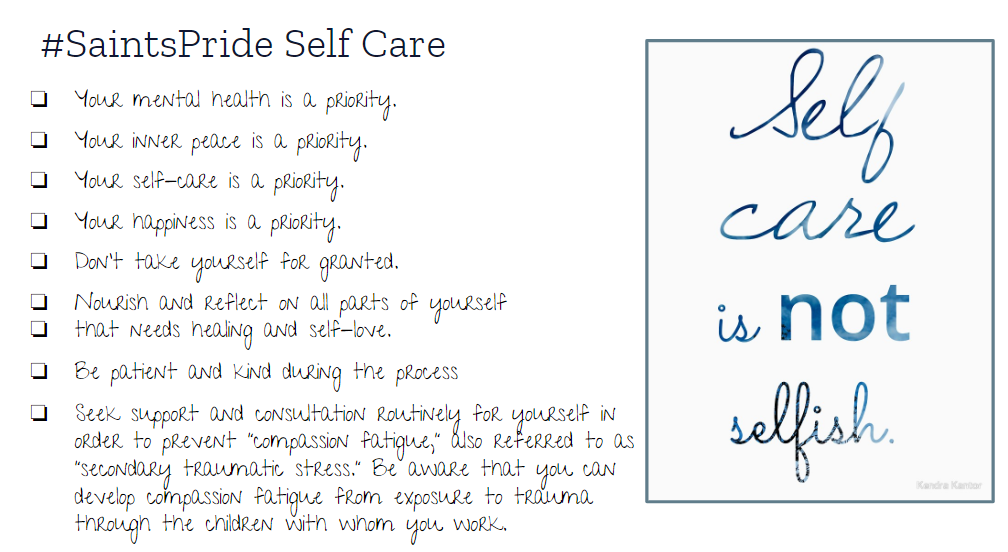 #SaintsPride Self Care
❏ Your mental health is a priority.
❏ Your inner peace is a priority.
❏ Your self-care is a priority.
❏ Your happiness is a priority.
❏ Don't take yourself for granted.
❏ Nourish and reflect on all parts of yourself
❏ that needs healing and self-love.
❏ Be patient and kind during the process
❏ Seek support and consultation routinely for yourself in
order to prevent "compassion fatigue," also referred to as
"secondary traumatic stress." Be aware that you can
develop compassion fatigue from exposure to trauma
through the children with whom you work.
Self
care
is not
selfish.
Kendra Kantor